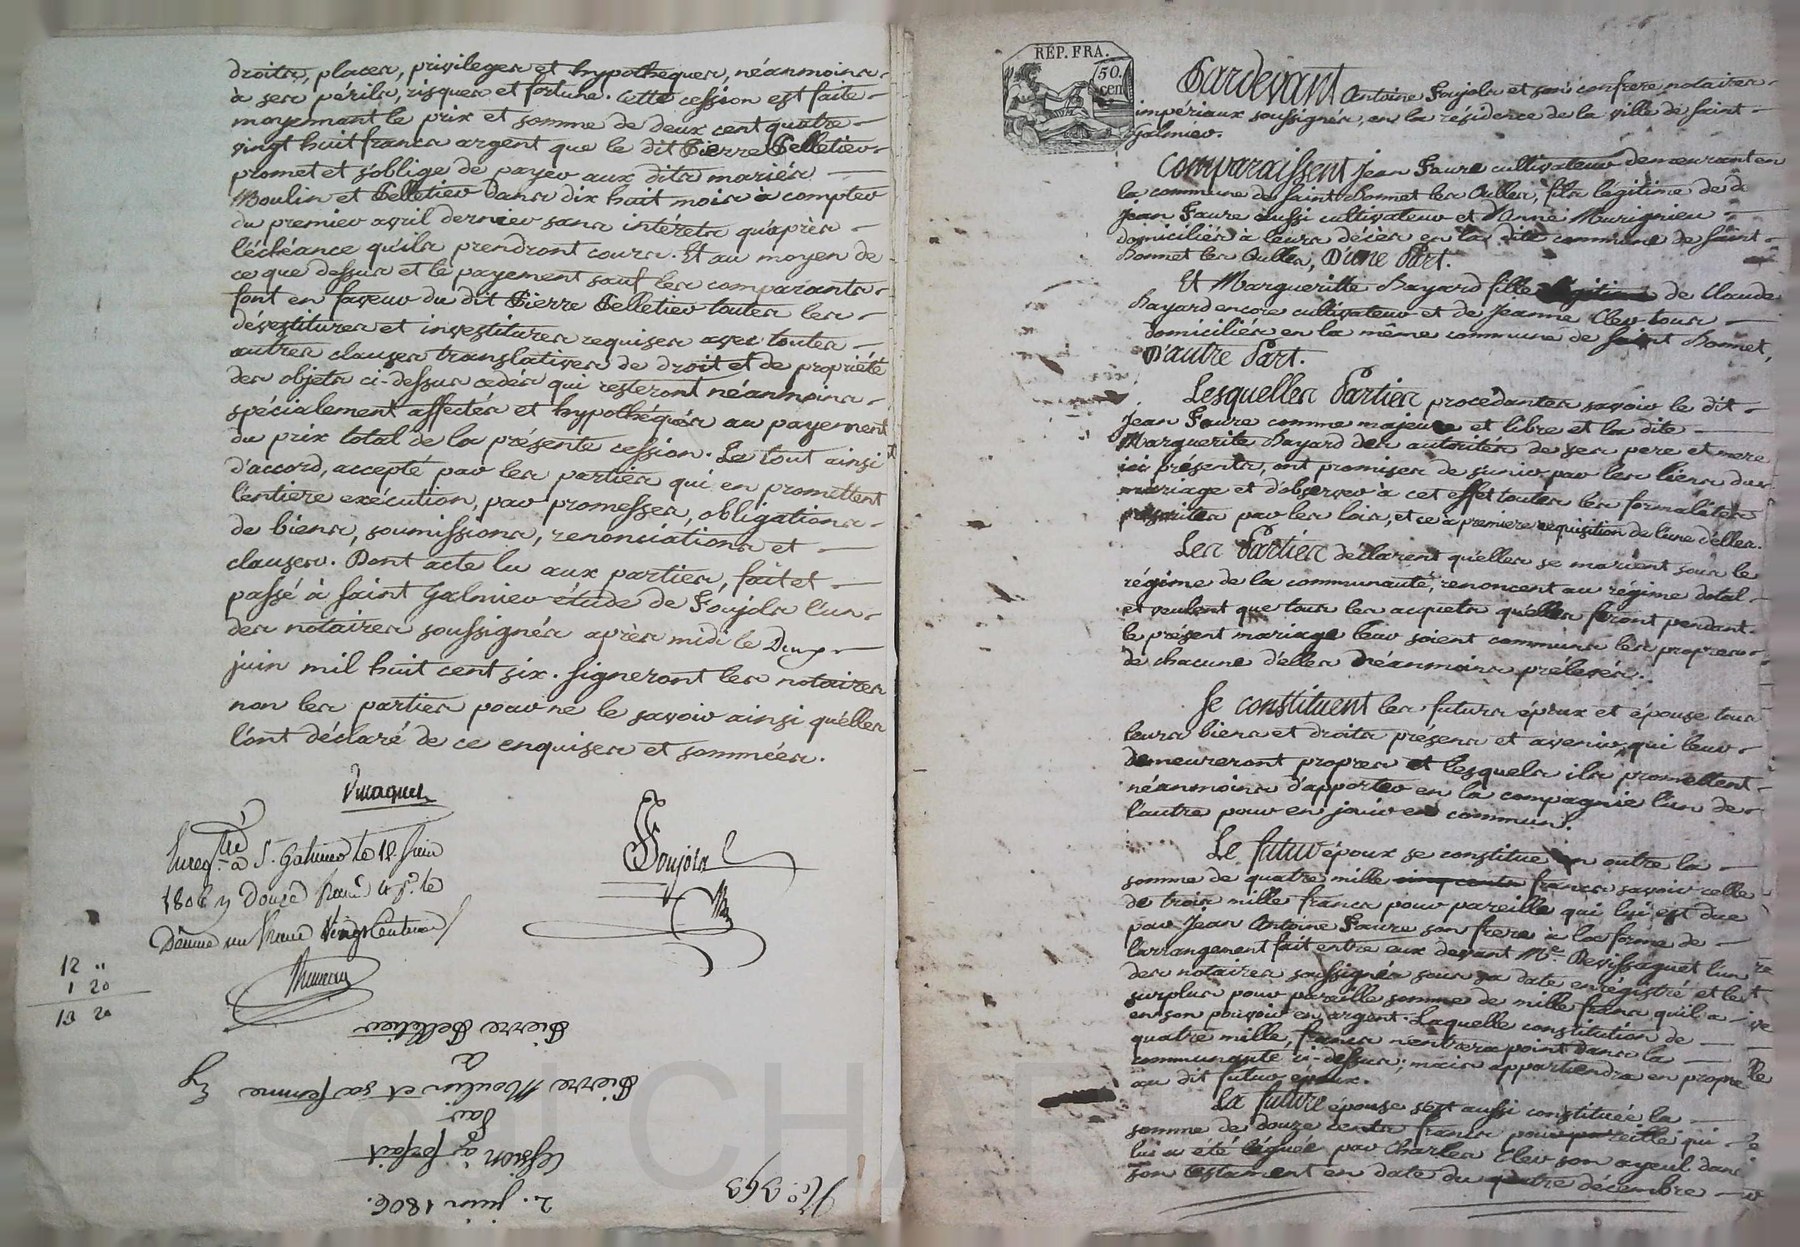 droits, places, privileges et hypotheques, néanmoins
à ses périls, risques et fortune. Cette cession est faite
moyennant le prix et somme de deux cent quatre
vingt huit francs argent que le dit Pierre Pelletier
promet et s'oblige de payer aux dits mariés
Moulin et Pelletier dans dix huit mois à compter
du premier avril dernier sans intérêts qu'après
l'échéance qu'ils prendront cours. Et au moyen de
ce que dessus et le payement sauf les comparants
font en faveur du dit Pierre Pelletier toutes les
dévestitures et investitures requises avec toutes
autres clauses translatives de droit et de propriété
des objets ci-dessus cedés qui resteront néanmoins
spécialement affectés et hypothéqués au payement
du prix total de la présente cession. Le tout ainsi
d'accord, accepté par les parties qui en promettent
l'entiere exécution, par promesses, obligations
de biens, soumissions, renonciations et
clauses. Dont acte lu aux parties, fait et
passé à saint Galmier étude de Foujols l'un
des notaires soussignés après midi le Deux
juin mil huit cent six. signeront les notaires
non les parties pour ne le savoir ainsi qu'elles
l'ont déclaré de ce enquises et sommées.
Foujols
Enreg.tré à S. Galmier le 12 Juin
1806 Douze francs
Dixme un franc vingt Centimes
12 "
1 20
13 20
Pierre Pelletier
à
Pierre Moulin et sa femme
Par
Cession à forfait
2. juin 1806.
N.o 363
REP. FRA.
50.
cen
Pardevant Antoine Foujols et son confrere notaires
impériaux soussignés, en la résidence de la ville de saint
galmier.
Comparaissent jean Faure cultivateur demeurant en
la commune de saint Bonnet les Oulles, fils légitime de d
jean Faure aussi cultivateur et d'Anne Murignieu
domiciliés à leurs décès en la dite commune de saint
Bonnet les Oulles, D'une Part.
Et Marguerite Bayard fille légitime de Claude
Bayard encore cultivateur et de Jeanne Cler tous
domiciliés en la même commune de saint Bonnet,
D'autre Part.
Lesquelles Parties procédantes savoir le dit
Jean Faure comme majeure et libre et la dite
Marguerite Bayard des autorités de ses pere et mere
ici présents, ont promises de s'unir par les liens du
mariage et d'observer à cet effet toutes les formalités
prescrites par les lois, et ce à premiere requisition de l'une d'elles.
Les Parties declarent qu'elles se marient sous le
régime de la communauté, renoncent au régime dotal
et veulent que tous les acquets qu'elles feront pendant
le présent mariage leur soient communs les propres
de chacune d'elles néanmoins prélevés.
Se constituent les futurs époux et épouse tous
leurs biens et droits presens et avenir, qui leur
demeureront propres et lesquels ils promettent
néanmoins d'apporter en la compagnie l'un de
l'autre pour en jouir en commun.
Le futur époux se constitue en outre la
somme de quatre mille cinq cents francs savoir celle
de trois mille francs pour pareille qui lui est due
par Jean Antoine Faure son frere à la forme de
l'arrangement fait entre eux devant Me. Devissaguet l'un
des notaires soussignés sous sa date enregistré et le
surplus pour pareille somme de mille francs qu'il a
en son pouvoir en argent. Laquelle constitution de
quatre mille francs n'entrera point dans la
communauté ci-dessus; mais appartiendra en propre
au dit futur époux.
La future épouse s'est aussi constituée la
somme de douze cents francs pour pareille qui
lui a été léguée par Charles Cler son ayeul dans
son testament en date du quatre décembre